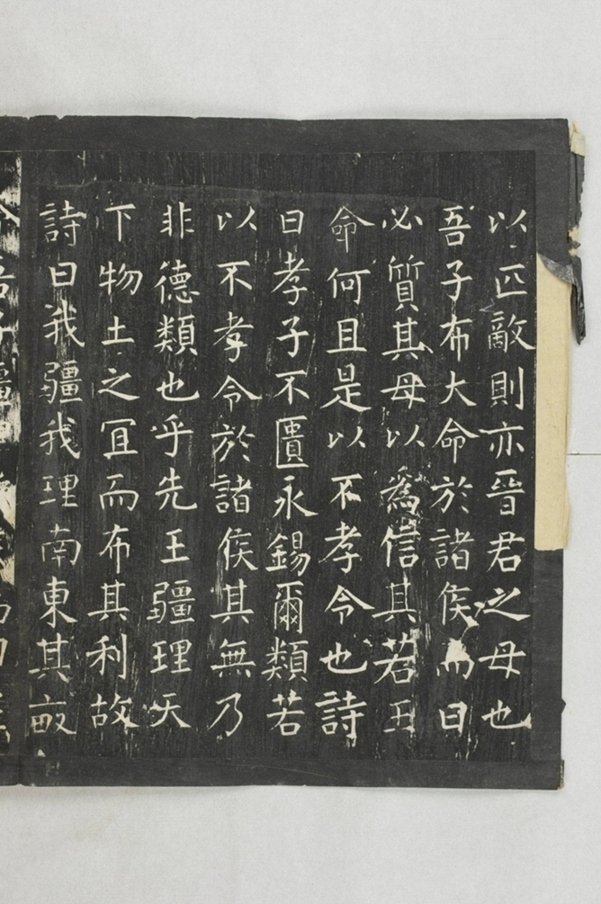 以匹敵則亦晉君之母也
吾子布大命於諸侯而曰
必質其母以為信其若王
命何且是以不孝令也詩
曰孝子不匱永錫爾類若
以不孝令於諸侯其無乃
非德類也乎先王疆理天
下物土之宜而布其利故
詩曰我疆我理南東其畝